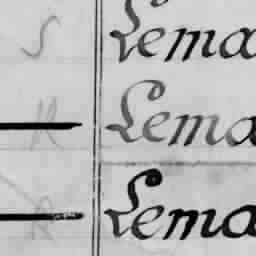 S Lema
R Lema
R Lema